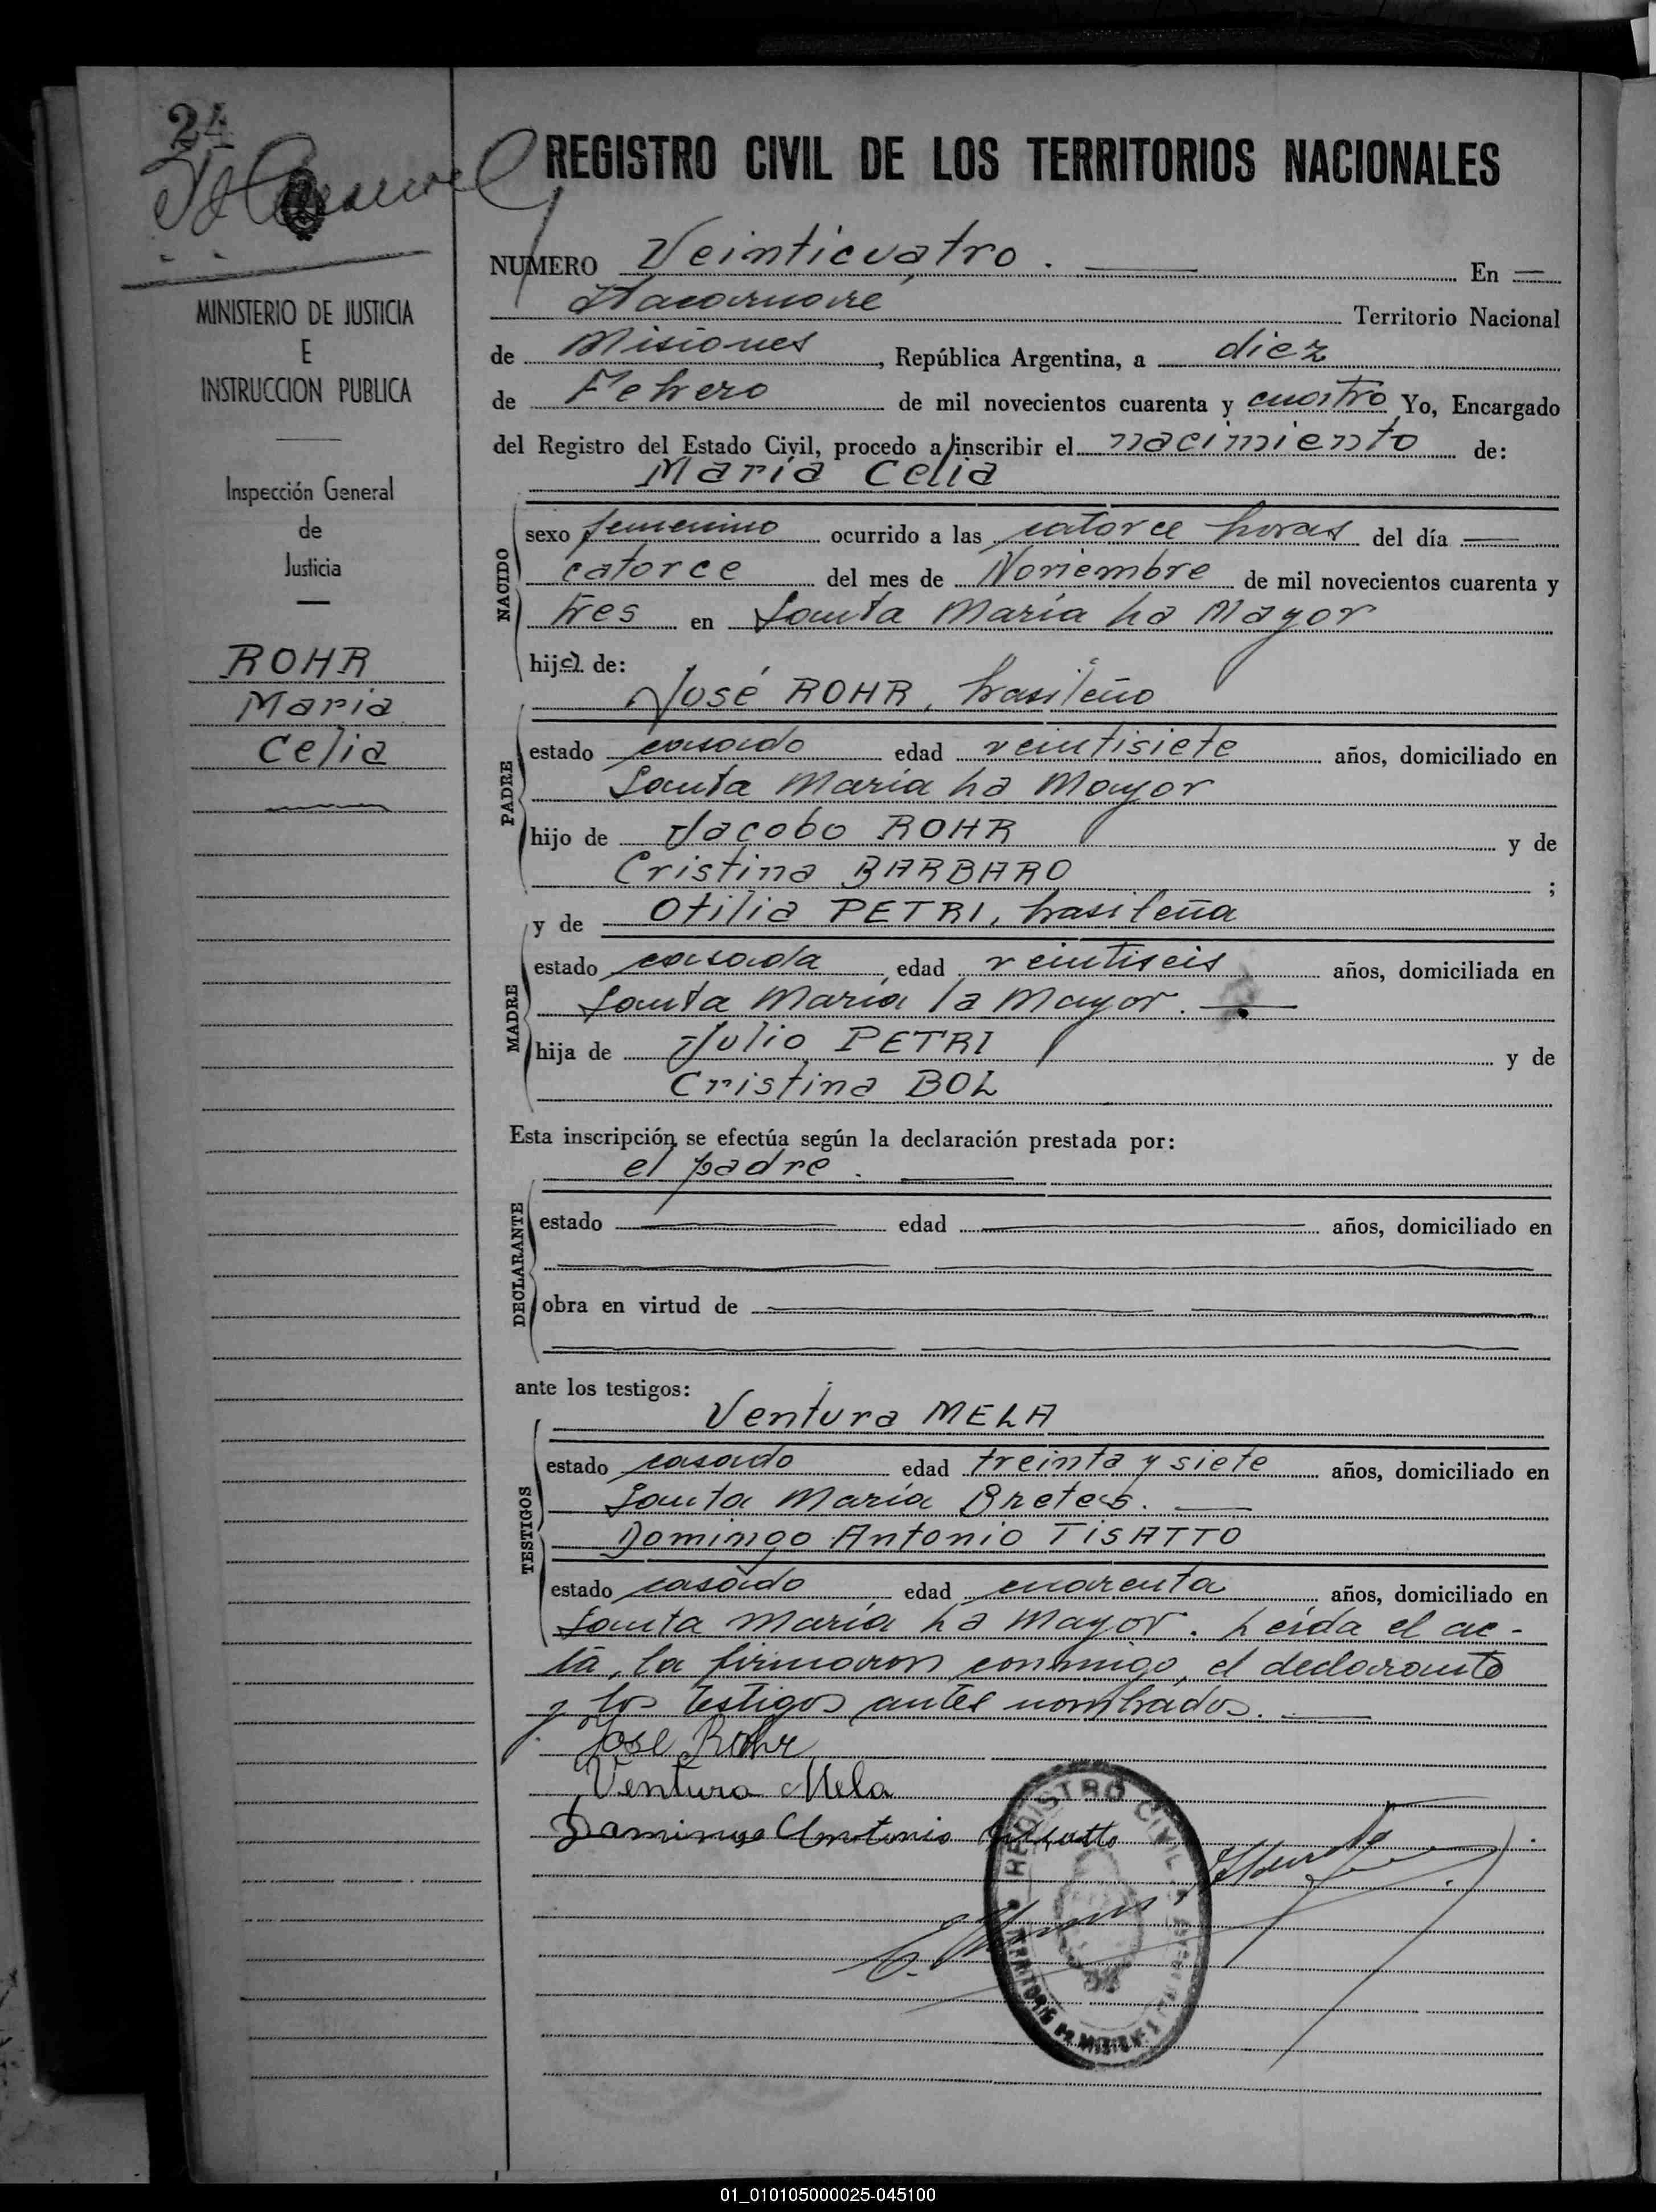 24
REGISTRO CIVIL DE LOS TERRITORIOS NACIONALES
MINISTERIO DE JUSTICIA
E
INSTRUCCION PUBLICA
Inspección General
de
Justicia
ROHR
Maria
Celia
NUMERO Veinticuatro. En
Itacaruaré Territorio Nacional
de Misiones, República Argentina, a diez
de Febrero de mil novecientos cuarenta y cuatro Yo, Encargado
del Registro del Estado Civil, procedo a inscribir el nacimiento de:
María Celia
NACIDO
sexo femenino ocurrido a las catorce horas del día
catorce del mes de Noviembre de mil novecientos cuarenta y
tres en Santa María La Mayor
hija de:
José ROHR, brasileño
PADRE
estado casado edad veintisiete años, domiciliado en
Santa María La Mayor
hijo de Jacobo ROHR y de
Cristina BARBARO ;
y de Otilia PETRI, brasileña
MADRE
estado casada edad veintiseis años, domiciliada en
Santa María la Mayor.
hija de Julio PETRI y de
Cristina BOL
Esta inscripción se efectúa según la declaración prestada por:
el padre.
DECLARANTE
estado edad años, domiciliado en
obra en virtud de
ante los testigos:
Ventura MELA
TESTIGOS
estado casado edad treinta y siete años, domiciliado en
Santa María Bretes.
Domingo Antonio TISATTO
estado casado edad cuarenta años, domiciliado en
Santa María La Mayor. Leída el ac-
ta, la firmaron conmigo, el declarante
y los testigos antes nombrados.
José Rohr
Ventura Mela
Domingo Antonio Tisatto
REGISTRO CIVIL
01_010105000025-045100